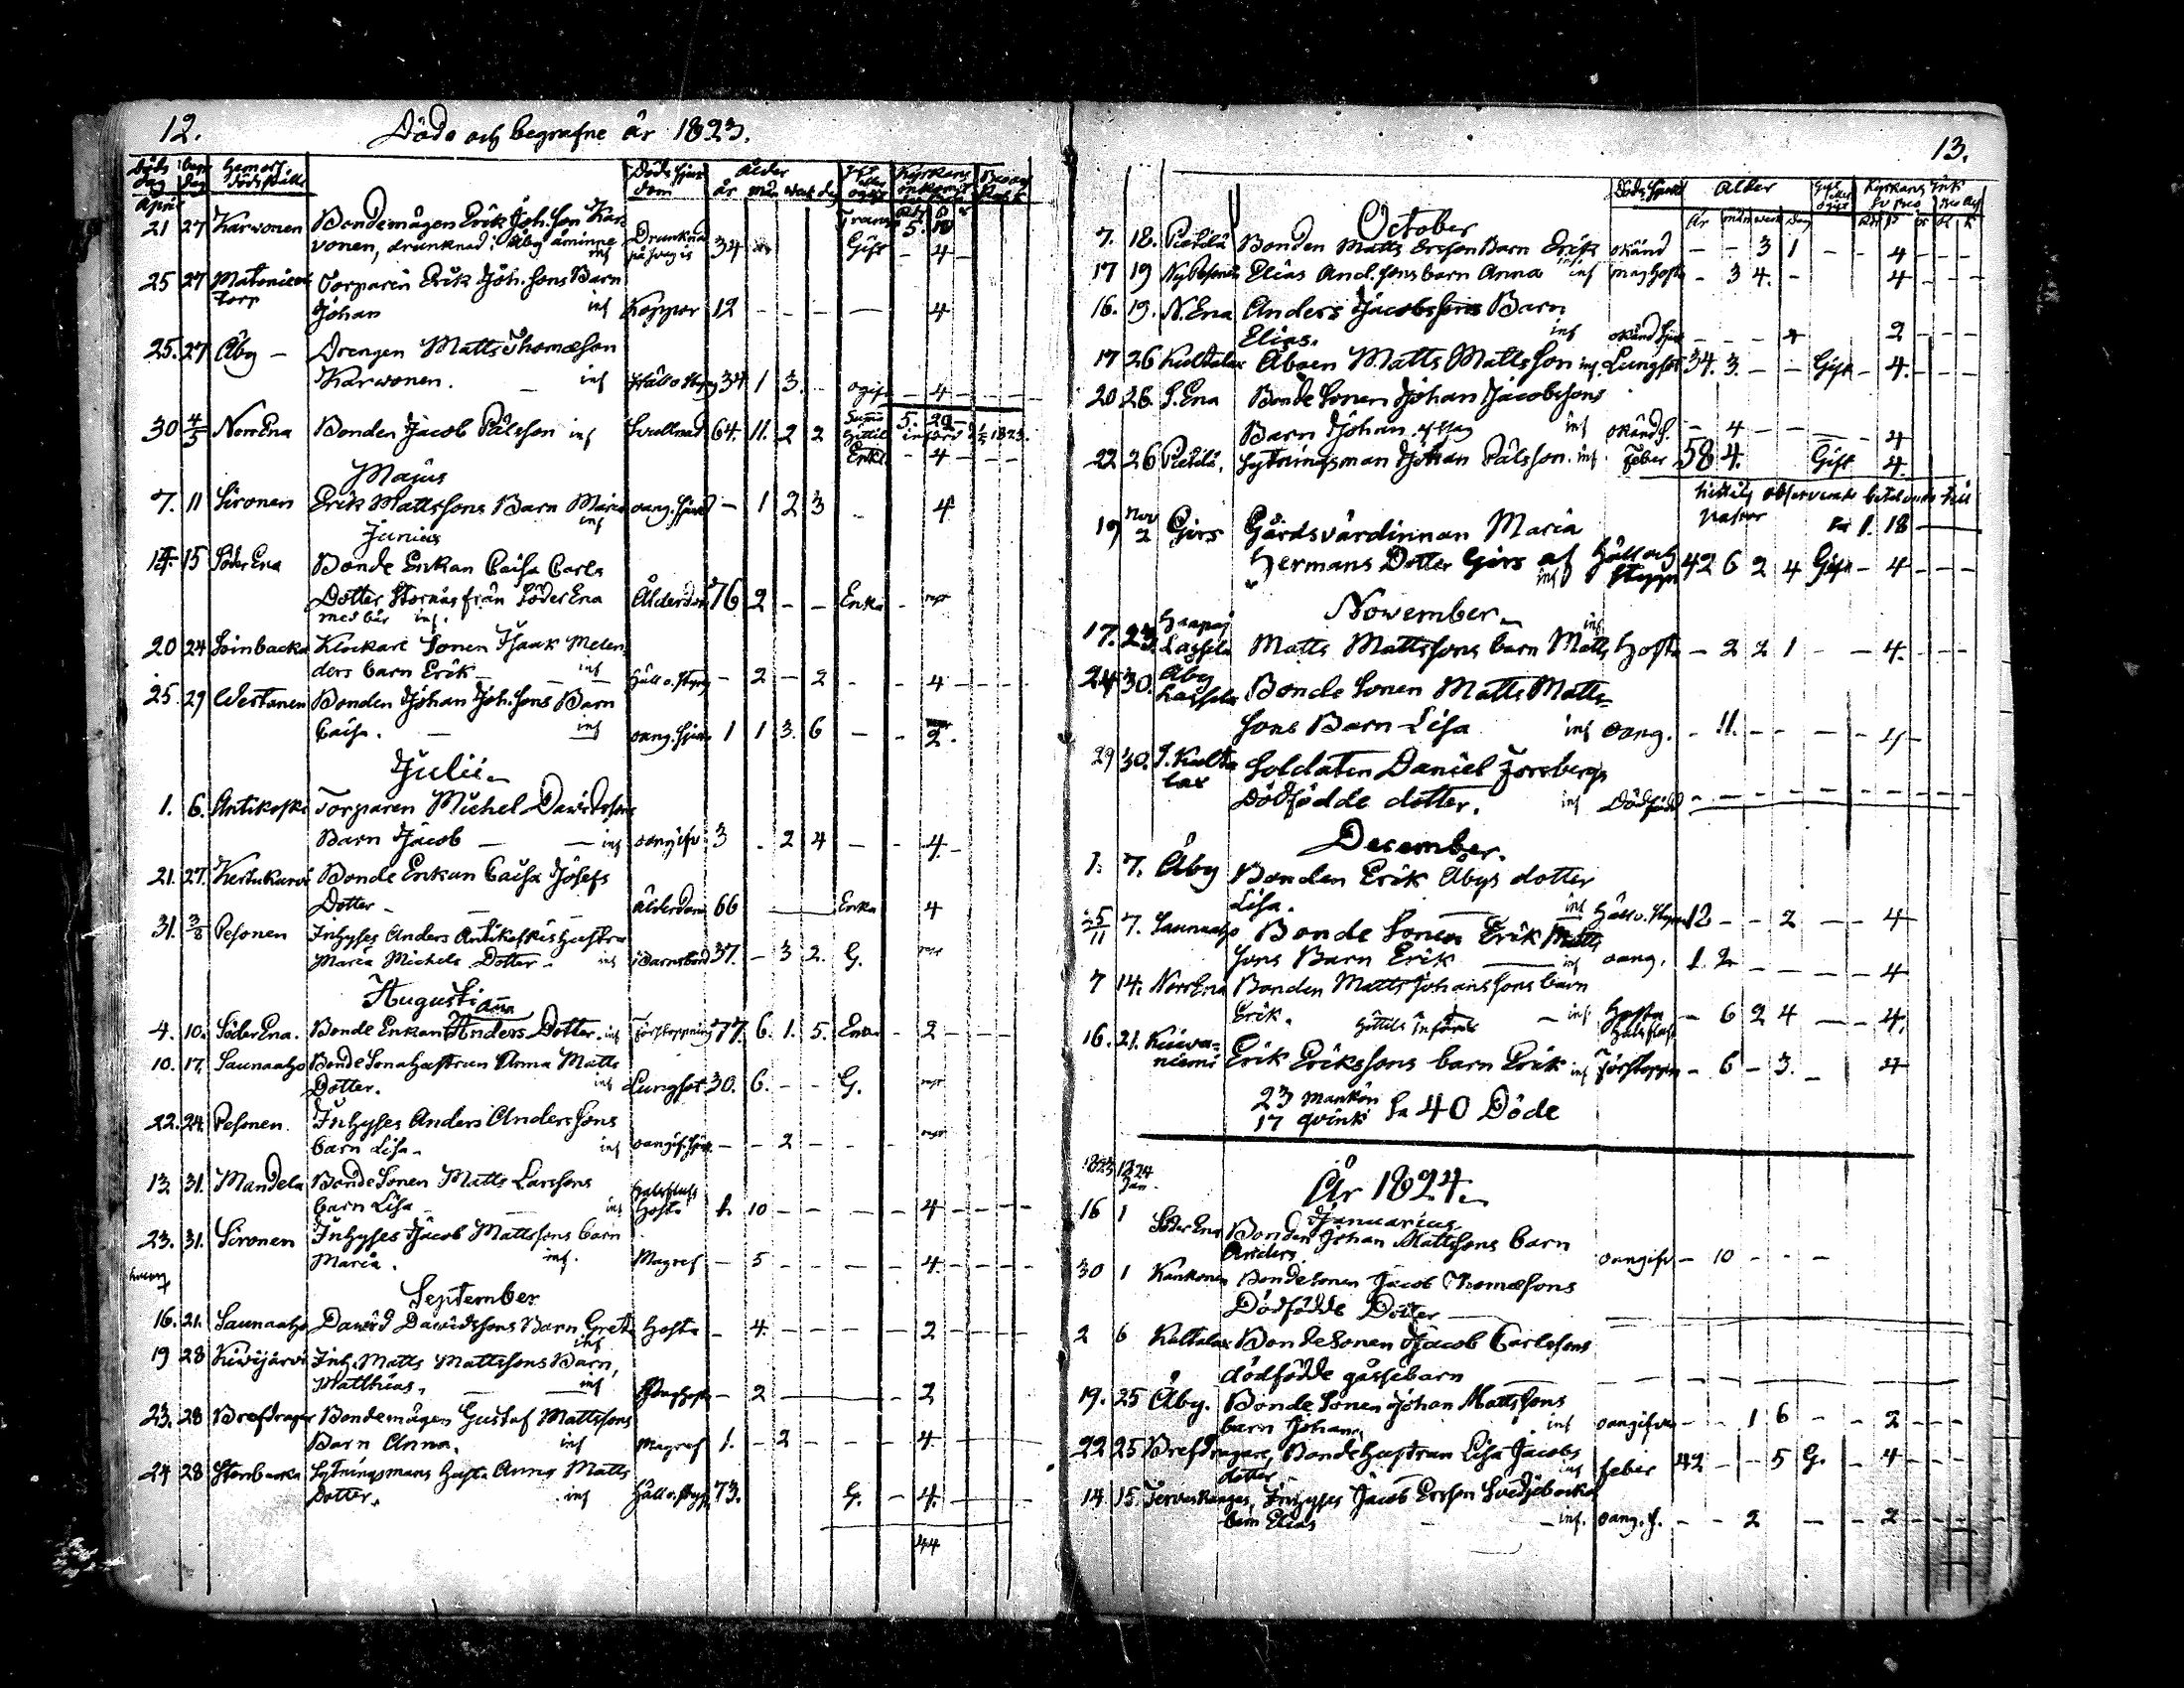 12.
Döde och begrafne år 1823.
Döds dag
begr dag
Hemort Dödsställe
Dödssjukdom
Ålder
år mån week dag
Gift eller ogift
Kyrkans inkomst
April
21 27 Karvonen Bondemågen Erik Joh.son Kar-
vonen, drunknad i Åby åminne Drunknad 34 Gift - 4 -
25 27 Torp Torparen Erik Joh.sons Barn
Johan inf Koppor 12 - - - — 4
25. 27 Åby - Drengen Matts Thomæson
Karvonen. inf Håll o styng 34 1 3. - ogift - 4 -
30 4/5 NorrEna Bonden Jacob Pålsson inf Svullnad 64. 11. 2 2 Enkl. - 4 - - -
Majus
7. 11 Sironen Erik Mattssons Barn Maria inf oang. sjuk - 1 2 3 - 4
Junius
14. 15 SöderEna Bonde Enkan Caisa Carls
Dotter Stornäs från SöderEna Ålderdom 76 2 - - Enka -
med bår inf.
20 24 Klockare Sonen Isaak Melen-
ders barn Erik - inf Håll o. styng - 2 - 2 - - 4 - - -
25. 29 Wertanen Bonden Johan Joh.sons Barn
Caisa. - inf oang. sjuk 1 1 3. 6 - - 2.
Julii
1. 6. Antikoski Torparen Michel Davidssons
Barn Jacob - - inf oangifv. 3 . 2 4 - - 4. -
21. 27. Bonde Enkan Caisa Josefs
Dotter - Ålderdom 66 — Enka 4
31. 3/8 Pesonen Inhyses Anders Antikoskis hustru
Maria Michels Dotter - inf i Barnsbörd 37. - 3 2. G.
Augusti
4. 10. SöderEna. Bonde Enkan Anna Anders Dotter. inf Förstoppning 77. 6. 1. 5. Enka - 2 - - -
10. 17. Saunaaho Bonde Sonahustrun Anna Matts
Dotter. inf Lungsot. 30. 6. - - G.
22. 24. Pesonen. Inhyses Anders Anderssons
barn Lisa - inf oangif. sjuk - - 2 - - -
13. 31. Mandela BondeSonen Matts Larssons
barn Lisa - inf Halsfluss Hosta 1. 10 - - - - 4 - - -
23. 31. Sironen Inhyses Jacob Mattssons barn
Maria. inf. Magref - 5 - - - - 4. - - -
September
16. 21. Saunaaho David Davidssons Barn Greta inf Hosta - 4. - - - - 2 - - -
19 28 Kiwijärvi Inh. Matts Mattssons Barn,
Matthias. - inf - 2 — - 2
23. 28 Brefdragar Bondemågen Gustaf Mattssons
Barn Anna. inf Magref 1. - 2 - - - 4. -
24 28 Stenbacka Sytningsmans Hustr Anna Matts
Dotter. inf Håll o. styng. 73. G. - 4. -
44
13.
Ålder
År mån week Dag
October
7. 18. Pietilä Bonden Matts Ersson Barn Erik okänd - - 3 1 - - 4 - - -
17 19 Elias And.sons barn Anna inf - 3 4. - 4 - - -
16. 19. N. Ena Anders Jacobssons Barn
Elias. inf okänd sjuk - - - 4 2 - - -
17 26 Kultalax Åboen Matts Mattsson inf. Lungsot 34. 3. - - Gift - 4. - - -
20 26. S. Ena Bonde Sonen Johan Jacobssons
Barn Johan inf okänd s. - 4 - - - 4
22 26 Pietilä. Sytningsman Johan Pålsson. inf Feber 58 4. Gift 4.
1. 18 —
19 Nov 2 Girs Gårdsvärdinnan Maria
Hermans Dotter Girs af Håll och styng inf 42 6 2 4 Gift - 4 - - -
November
17. 23. Lassila Matts Mattssons barn Matts inf Hosta - 2 2 1 - - 4. - - -
24 30. Åby Lassila Bonde Sonen Matts Matts-
sons Barn Lisa inf oang. - 11. - - - - 4 -
29 30. S. Kulta lax Soldaten Daniel Forsbergs
Dödfödde dotter. inf Dödfödd - - - - - - - - -
December.
1. 7. Åby Bonden Erik Åbys dotter
Lisa. inf Håll o. styng 12 - - 2 - - 4
25/11 7. Saunaaho Bonde Sonen Erik Matts
sons Barn Erik — inf oang. 1. 2 - - - - 4
7 14. NorrEna Bonden Matts Johanssons barn
Erik. - inf. Hosta - 6 2 4 - - 4.
Hittils införde
16. 21. Kiiva-niemi Erik Erikssons barn Erik inf Halsfluss Förstoppn - 6 - 3. - 4
23 mankön
17 qvink
Sa 40 Döde
1823 1824 Jan.
År 1824.
Januarius
16 1 SöderEna Bonden Johan Mattssons barn
Anders oangifv - 10 - - -
30 1 Kankonen Bondesonen Jacob Thomæsons
Dödfödde Dotter —
2 6 Kultalax Bondesonen Jacob Carlssons
dödfödde gåssebarn — - - - -
19. 25 Åby. Bonde Sonen Johan Mattssons
barn Johan. inf oangifven - - 1 6 - - 2 - - -
22 25 Brefdragare, Bondehustrun Lisa Jacobs
dotter inf feber 42 - - 5 G. - 4 - - -
14. 15. Terwaskangas, Inhyses Jacob Ersson Svedjebacka
barn Elias - inf. oang. s. - - 2 - - 2 - - -